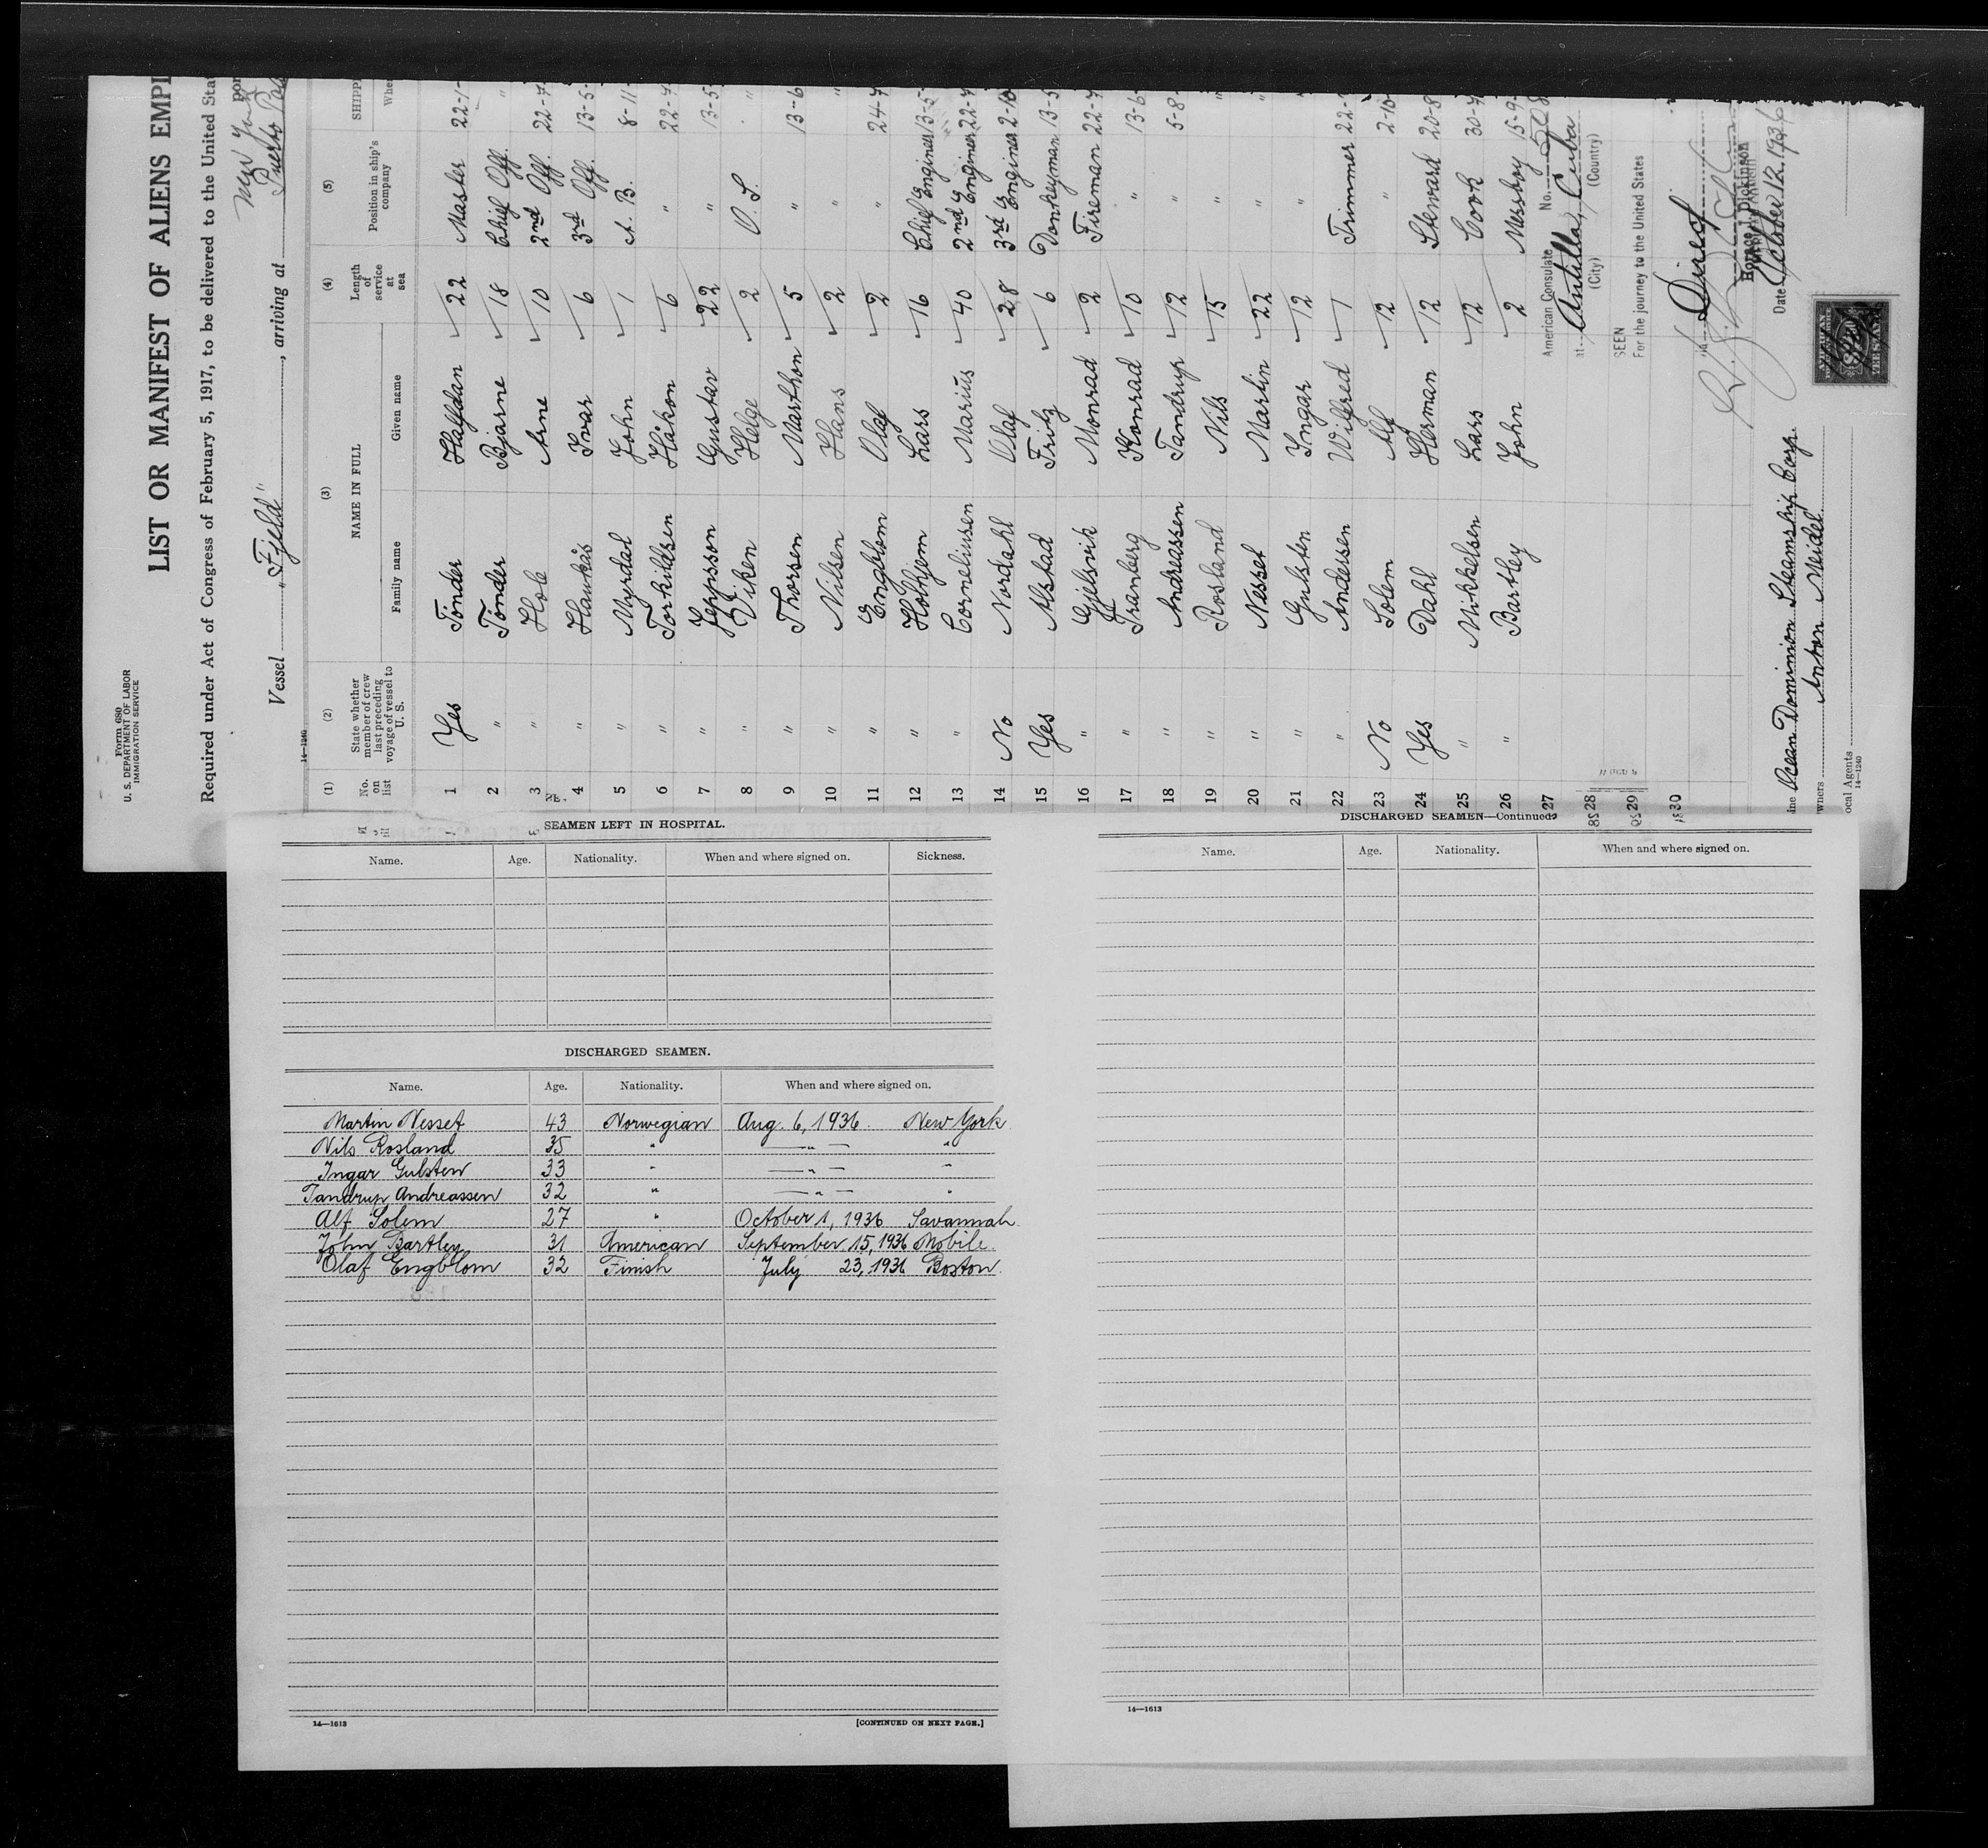 Form 680
U. S. DEPARTMENT OF LABOR
IMMIGRATION SERVICE
LIST OR MANIFEST OF ALIENS EMPL
Required under Act of Congress of February 5, 1917, to be delivered to the United Sta
New York
Vessel "Fjeld", arriving at Puerto
14—1240
(1) (2) (3) (4) (5)
No. on list State whether member of crew last preceding voyage of vessel to U. S. NAME IN FULL Length of service at sea Position in ship's company SHIPP
Family name Given name Whe
1 Yes Tönder Halfdan 22 Master 22-1-
2 " Tönder Bjarne 18 Chief Off. "
3 " Hole Arne 10 2nd Off. 22-7
4 " Haukås Ivar 6 3rd Off. 13-5-
5 " Myrdal John 1 A. B. 8-11
6 " Torkildsen Håkon 6 " 22-7
7 " Jeppsson Gustav 22 " 13-5
8 " Viken Helge 2 O. S. "
9 " Thorsen Marthon 5 " 13-6
10 " Nilsen Hans 2 " "
11 " Engblom Olaf 2 " 24-7
12 " Holhjem Lars 16 Chief Enginer 13-5-
13 " Corneliussen Marius 40 2nd Enginer 22-7
14 No Nordahl Olaf 28 3rd Enginer 2-10
15 Yes Alstad Fritz 6 Donkeyman 13-5
16 " Gjelsvik Monrad 2 Fireman 22-7
17 " Tranberg Konrad 10 " 13-6-
18 " Andreassen Tandrup 12 " 5-8-
19 " Rosland Nils 15 " "
20 " Nesset Martin 22 " "
21 " Gulsten Ingar 12 " "
22 " Anderssen Wilfred 1 Trimmer 22-
23 No Solem Alf 12 " 2-10-
24 Yes Dahl Herman 12 Steward 20-8
25 " Mikkelsen Lars 12 Cook 30-7
26 " Bartley John 2 Messboy 15-9-
27
28
29
30
American Consulate No.
at Antilla, Cuba
(City) (Country)
SEEN
For the journey to the United States
Direct
Horace J. Dickinson
Date October 12, 1936
ine Ocean Dominion Steamship Corp.
wners Anton Meidel
ocal Agents
14—1240
SEAMEN LEFT IN HOSPITAL.
Name. Age. Nationality. When and where signed on. Sickness.
DISCHARGED SEAMEN.
Name. Age. Nationality. When and where signed on.
Martin Nesset 43 Norwegian Aug. 6, 1936. New York
Nils Rosland 35 " " "
Ingar Gulsten 33 " " "
Tandrup Andreassen 32 " " "
Alf Solem 27 " October 1, 1936 Savannah
John Bartley 31 American September 15, 1936 Mobile
Olaf Engblom 32 Finish July 23, 1936 Boston
14—1613
[CONTINUED ON NEXT PAGE.]
DISCHARGED SEAMEN—Continued
Name. Age. Nationality. When and where signed on.
14—1613